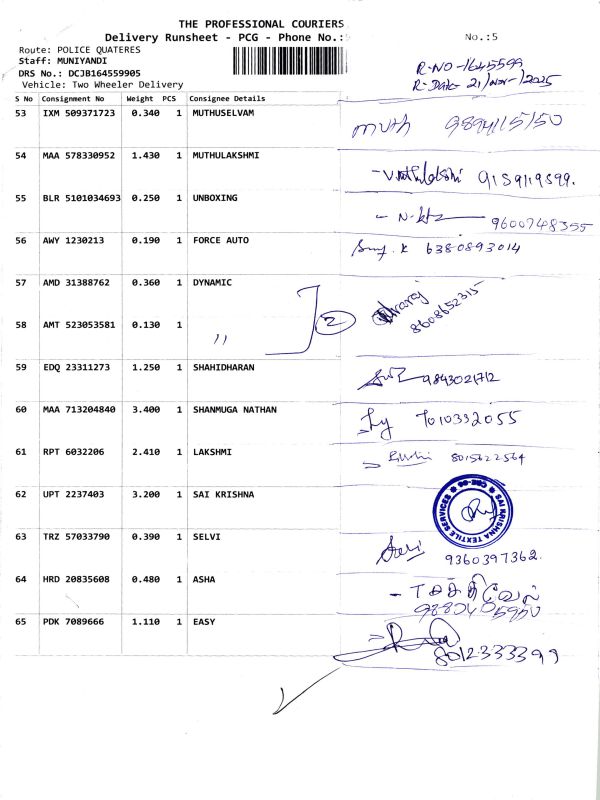 THE PROFESSIONAL COURIERS
Delivery Runsheet - PCG - Phone No.:5 No.:5
Route: POLICE QUATERES
Staff: MUNIYANDI
DRS No.: DCJB164559905
Vehicle: Two Wheeler Delivery
R-NO-1645599
R-Date- 21/Nov-/2025
S No Consignment No Weight PCS Consignee Details
53 IXM 509371723 0.340 1 MUTHUSELVAM
54 MAA 578330952 1.430 1 MUTHULAKSHMI 9159119899.
55 BLR 5101034693 0.250 1 UNBOXING 9600748355
56 AWY 1230213 0.190 1 FORCE AUTO 6380893014
57 AMD 31388762 0.360 1 DYNAMIC
58 AMT 523053581 0.130 1 ,, 2 8608652315
59 EDQ 23311273 1.250 1 SHAHIDHARAN 9843021712
60 MAA 713204840 3.400 1 SHANMUGA NATHAN 7010332055
61 RPT 6032206 2.410 1 LAKSHMI 8015622564
62 UPT 2237403 3.200 1 SAI KRISHNA
SAI KRISHNA TEXTILE SERVICES
63 TRZ 57033790 0.390 1 SELVI 9360397362.
64 HRD 20835608 0.480 1 ASHA
65 PDK 7089666 1.110 1 EASY 8012333399